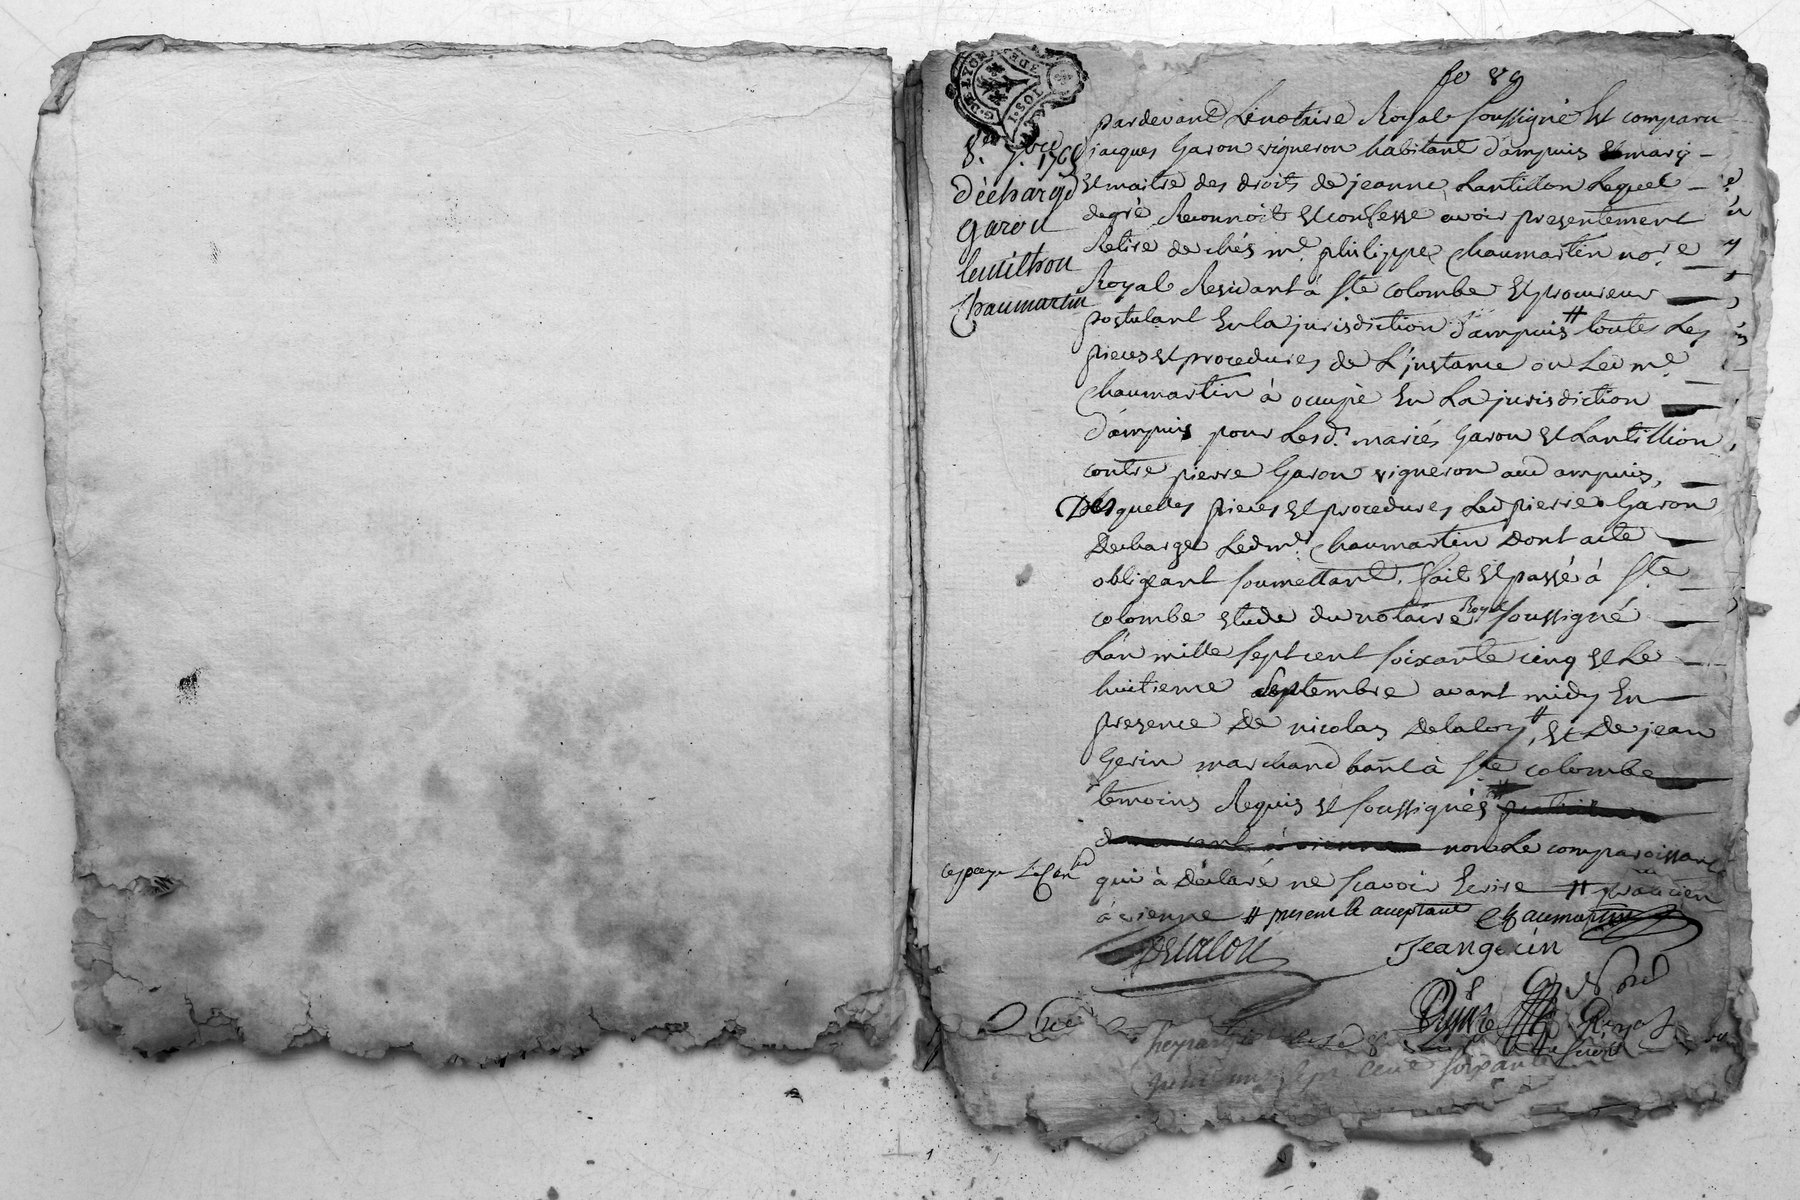 fo 89
G. DE LYON
8.e 7.bre 1765
décharge
garon
lentilhon
Chaumartin
pardevant Le notaire Royal soussigné Est comparu
jacques Garon vigneron habitant d'ampuis mary
Et maitre des droits de jeanne Lantillon Lequel
degré Reconnoit Et confesse avoir presentement
Retire de chés m.e philippe Chaumartin no.re
Royal Residant à S.te colombe Et procureur
postulant En la jurisdiction d'ampuis # toutes Les
pieces Et procedures de L'instance ou Led m.e
Chaumartin à occupé En La jurisdiction
d'ampuis pour Lesd. mariés Garon Et Lantillion
contre pierre Garon vigneron aud ampuis,
Desquelles pieces Et procedures Led pierre Garon
Decharge Led m.e Chaumartin Dont acte
obligeant soumettant. fait Et passé à S.te
colombe Etude du notaire Royal soussigné
L'an mille sept cent soixante cinq Et Le
huitieme septembre avant midy En
presence De nicolas Delaloy #, Et De jean
Gerin marchand hant à S.te colombe
temoins Requis Et soussignés #
non Le comparoissant
qui à Déclaré ne scavoir Ecrire # praticien
à vienne # present Et acceptant Chaumartin
Delalou
Jean gerin
Royal
sept cent soixante